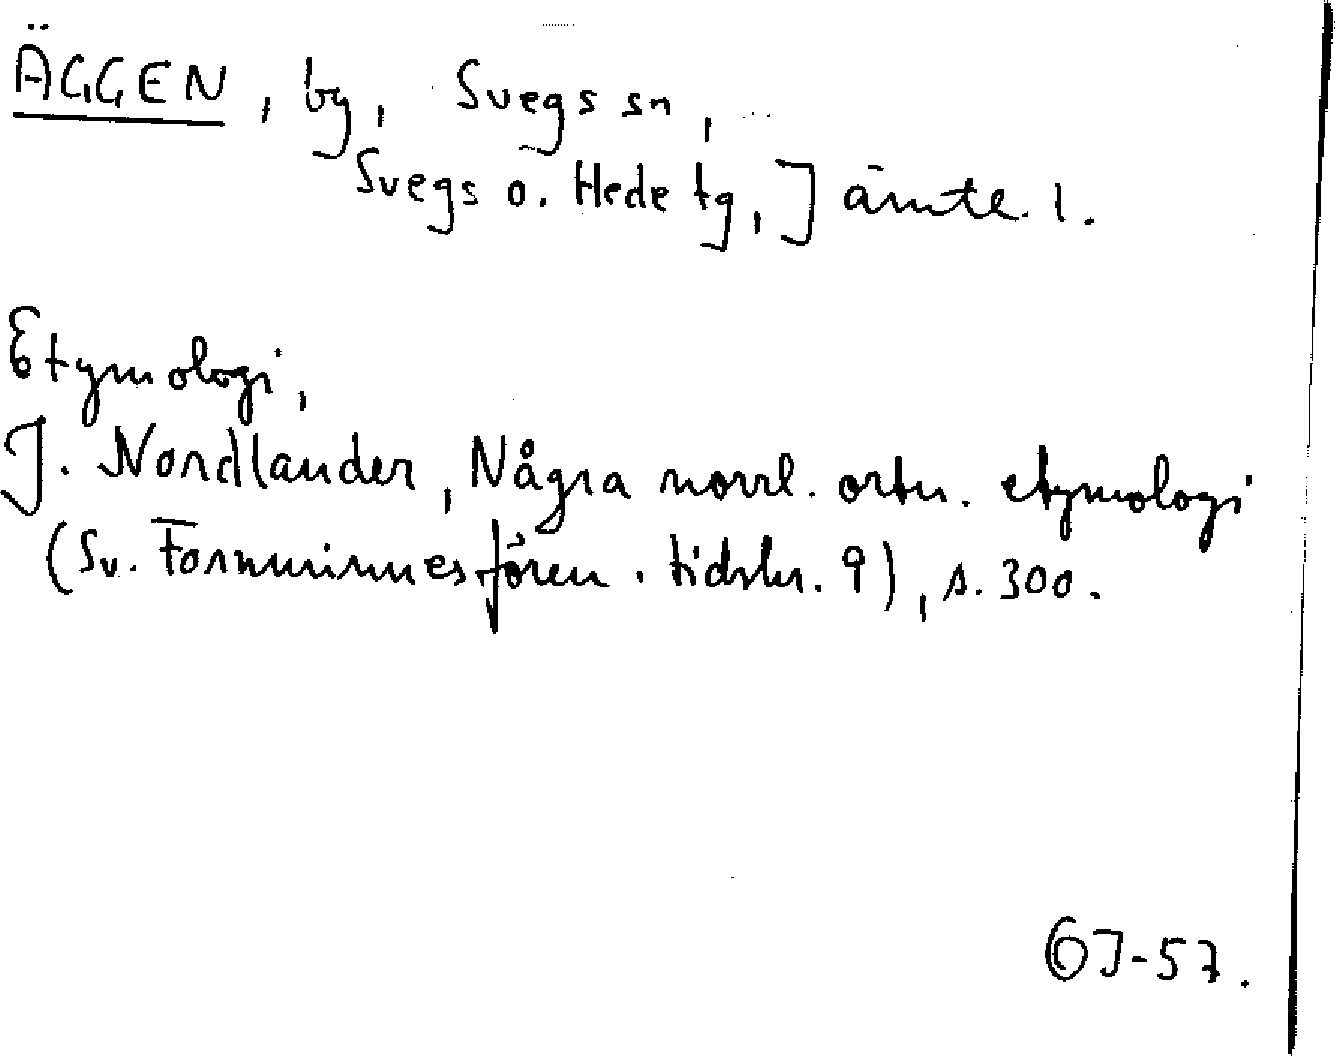 ÄGGEN, by, Svegs sn,
Svegs o. Hede tg, Jämtl. l.
Etymologi,
J. Nordlander, Några norrl. ortn. etymologi
(Sv. Fornminnesfören. tidskr. 9), s. 300.
GJ-57.